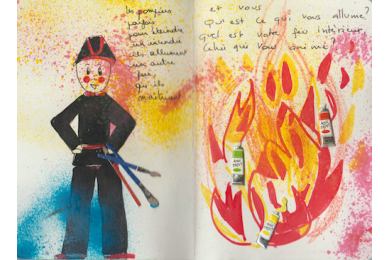 les pompiers
parfois
pour éteindre
un incendie
ils allument
un autre
feu
qu'ils
maîtrisent
et vous
Qu'est ce qui vous allume?
Quel est votre feu intérieur
Celui qui vous anime?